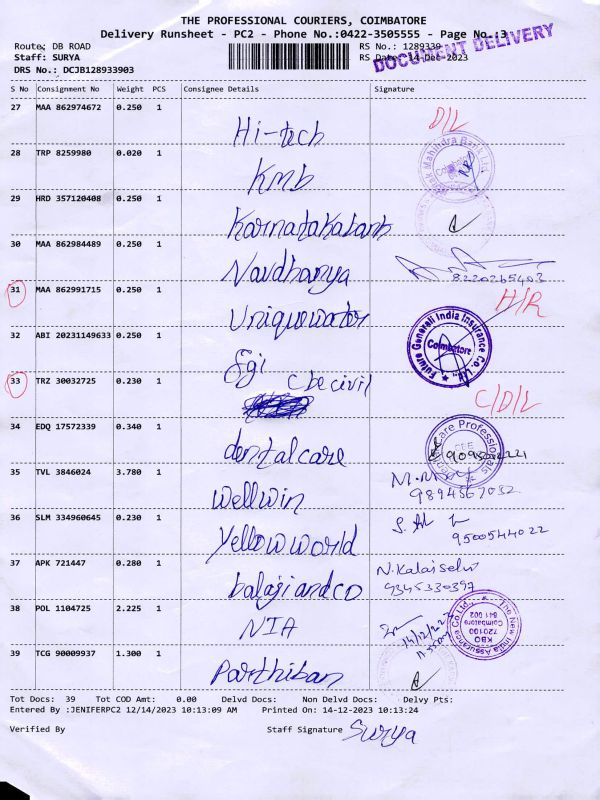 THE PROFESSIONAL COURIERS, COIMBATORE
Delivery Runsheet - PC2 - Phone No.:0422-3505555 - Page No.:3
Route: DB ROAD
RS No.: 1289339
Staff: SURYA
RS Date: 14-Dec-2023
DOCUMENT DELIVERY
DRS No.: DCJB128933903
S No Consignment No Weight PCS Consignee Details Signature
27 MAA 862974672 0.250 1 Hi-tech D/L
28 TRP 8259980 0.020 1 KMB
Mahindra Bank Ltd
Coimbatore
29 HRD 357120408 0.250 1 Karnatakabank
30 MAA 862984489 0.250 1 Navdhanya 8220265403
31 MAA 862991715 0.250 1 Uniquewater H/R
32 ABI 20231149633 0.250 1 Fgi
Future Generali India Insurance Co. Ltd.
Coimbatore
33 TRZ 30032725 0.230 1 Cbe civil C/D/L
34 EDQ 17572339 0.340 1 dentalcare
Care Professionals
35 TVL 3846024 3.780 1 Wellwin 9894567032
36 SLM 334960645 0.230 1 Yellow world 9500544022
37 APK 721447 0.280 1 balajiandco N.Kalaiselvi
9345330397
38 POL 1104725 2.225 1 NIA 14/12/23
The New India Assurance Co Ltd.,
KBO
720100
Coimbatore
641 002
39 TCG 90009937 1.300 1 Parthiban
Tot Docs: 39 Tot COD Amt: 0.00 Delvd Docs: Non Delvd Docs: Delvy Pts:
Entered By :JENIFERPC2 12/14/2023 10:13:09 AM Printed On: 14-12-2023 10:13:24
Verified By Staff Signature Surya